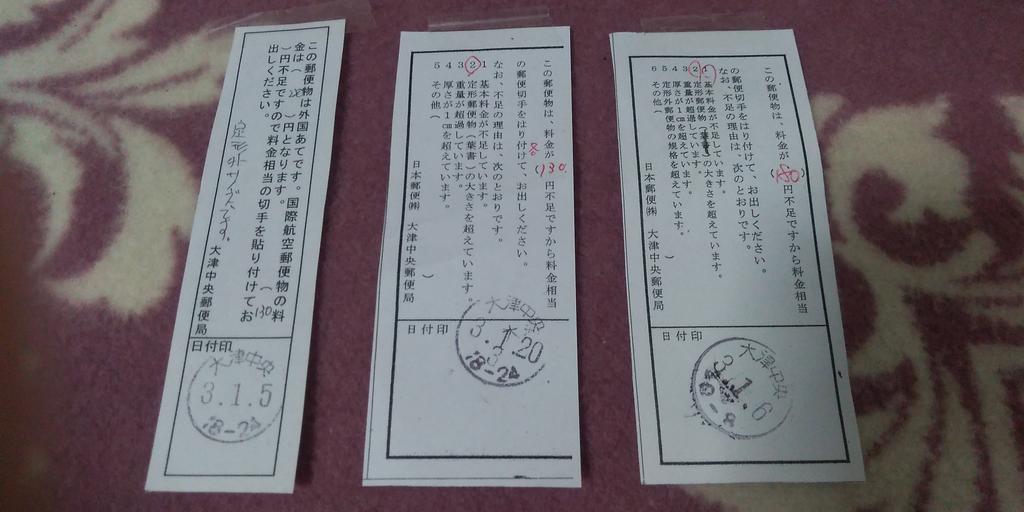 この郵便物は、料金が(130)円不足ですから料金相当
の郵便切手をはり付けて、お出しください。
なお、不足の理由は、次のとおりです。
1 基本料金が不足しています。
2 定形郵便物(葉書)の大きさを超えています。
3 重量が超過しています。
4 厚さが1㎝を超えています。
5 その他( )
日本郵便㈱ 大津中央郵便局
日付印
大津中央
3. 1. 20
18-24
この郵便物は、料金が( )円不足ですから料金相当
の郵便切手をはり付けて、お出しください。
なお、不足の理由は、次のとおりです。
1 基本料金が不足しています。
2 定形郵便物(葉書)の大きさを超えています。
3 重量が超過しています。
4 厚さが1㎝を超えています。
5 定形外郵便物の規格を超えています。
6 その他( )
日本郵便㈱ 大津中央郵便局
日付印
大津中央
3. 1. 6
この郵便物は外国あてです。国際航空郵便物の料
金は( )円となります。(130
)円不足ですので料金相当の切手を貼り付けてお
出しください。
定形外サイズです。
大津中央郵便局
日付印
大津中央
3.1.5
18-24